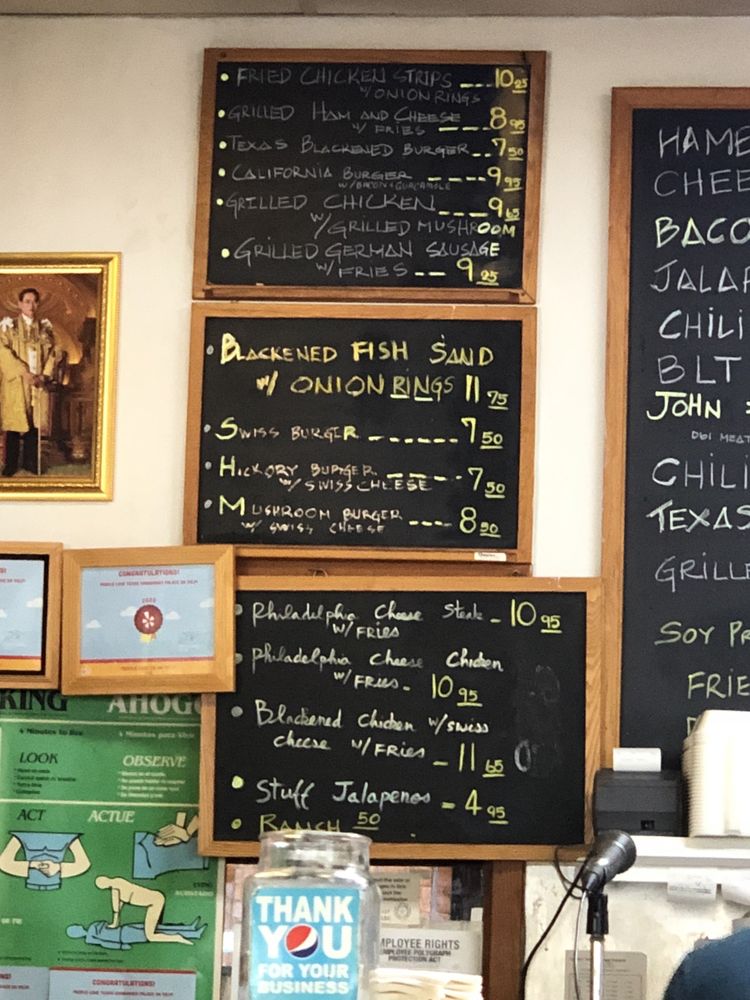 • FRIED CHICKEN STRIPS ---- 10 25
W/ ONION RINGS
• GRILLED HAM AND CHEESE 8 95
W/ FRIES ----
• TEXAS BLACKENED BURGER -- 7 50
• CALIFORNIA BURGER ----- 9 95
W/ BACON + GUACAMOLE
• GRILLED CHICKEN ---- 9 65
W/ GRILLED MUSHROOM
• GRILLED GERMAN SAUSAGE
W/ FRIES -- 9 25
• BLACKENED FISH SAND
W/ ONION RINGS 11 75
• SWISS BURGER ------ 7 50
• HICKORY BURGER ----- 7 50
W/ SWISS CHEESE
• MUSHROOM BURGER ---- 8 50
W/ SWISS CHEESE
• Philadelphia Cheese Steak - 10 95
W/ FRIES
• Philadelphia Cheese Chicken
W/ FRIES - 10 95
• Blackened Chicken W/ swiss
cheese W/ FRIES - 11 65
• Stuff Jalapenos - 4 95
• RANCH 50
HAME
CHEE
BACO
JALAP
CHILI
BLT
JOHN
CHILI
TEXAS
GRILLE
SOY PR
FRIE
CONGRATULATIONS!
2020
KING AHOG
4 Minutes to live
LOOK OBSERVE
ACT ACTUE
CONGRATULATIONS!
THANK
YOU
FOR YOUR
BUSINESS
MPLOYEE RIGHTS
EMPLOYEE POLYGRAPH
PROTECTION ACT